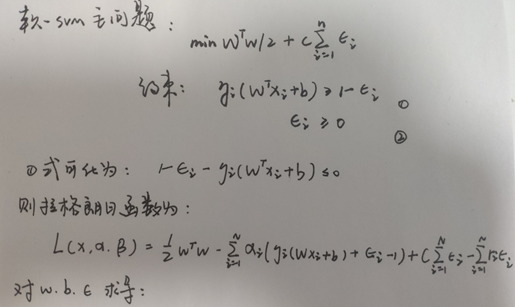 软-svm主问题:
min wᵀw/2 + C∑ᵢ₌₁ⁿ εᵢ
约束: yᵢ(wᵀxᵢ+b) ≥ 1-εᵢ ①
εᵢ ≥ 0 ②
①式可化为: 1-εᵢ-yᵢ(wᵀxᵢ+b) ≤0
则拉格朗日函数为:
L(x,α.β) = ½wᵀw - ∑ᵢ₌₁ᴺ αᵢ(yᵢ(wxᵢ+b)+εᵢ-1)+C∑ᵢ₌₁ᴺ εᵢ-∑ᵢ₌₁ᴺ βᵢεᵢ
对w.b.ε 求导: